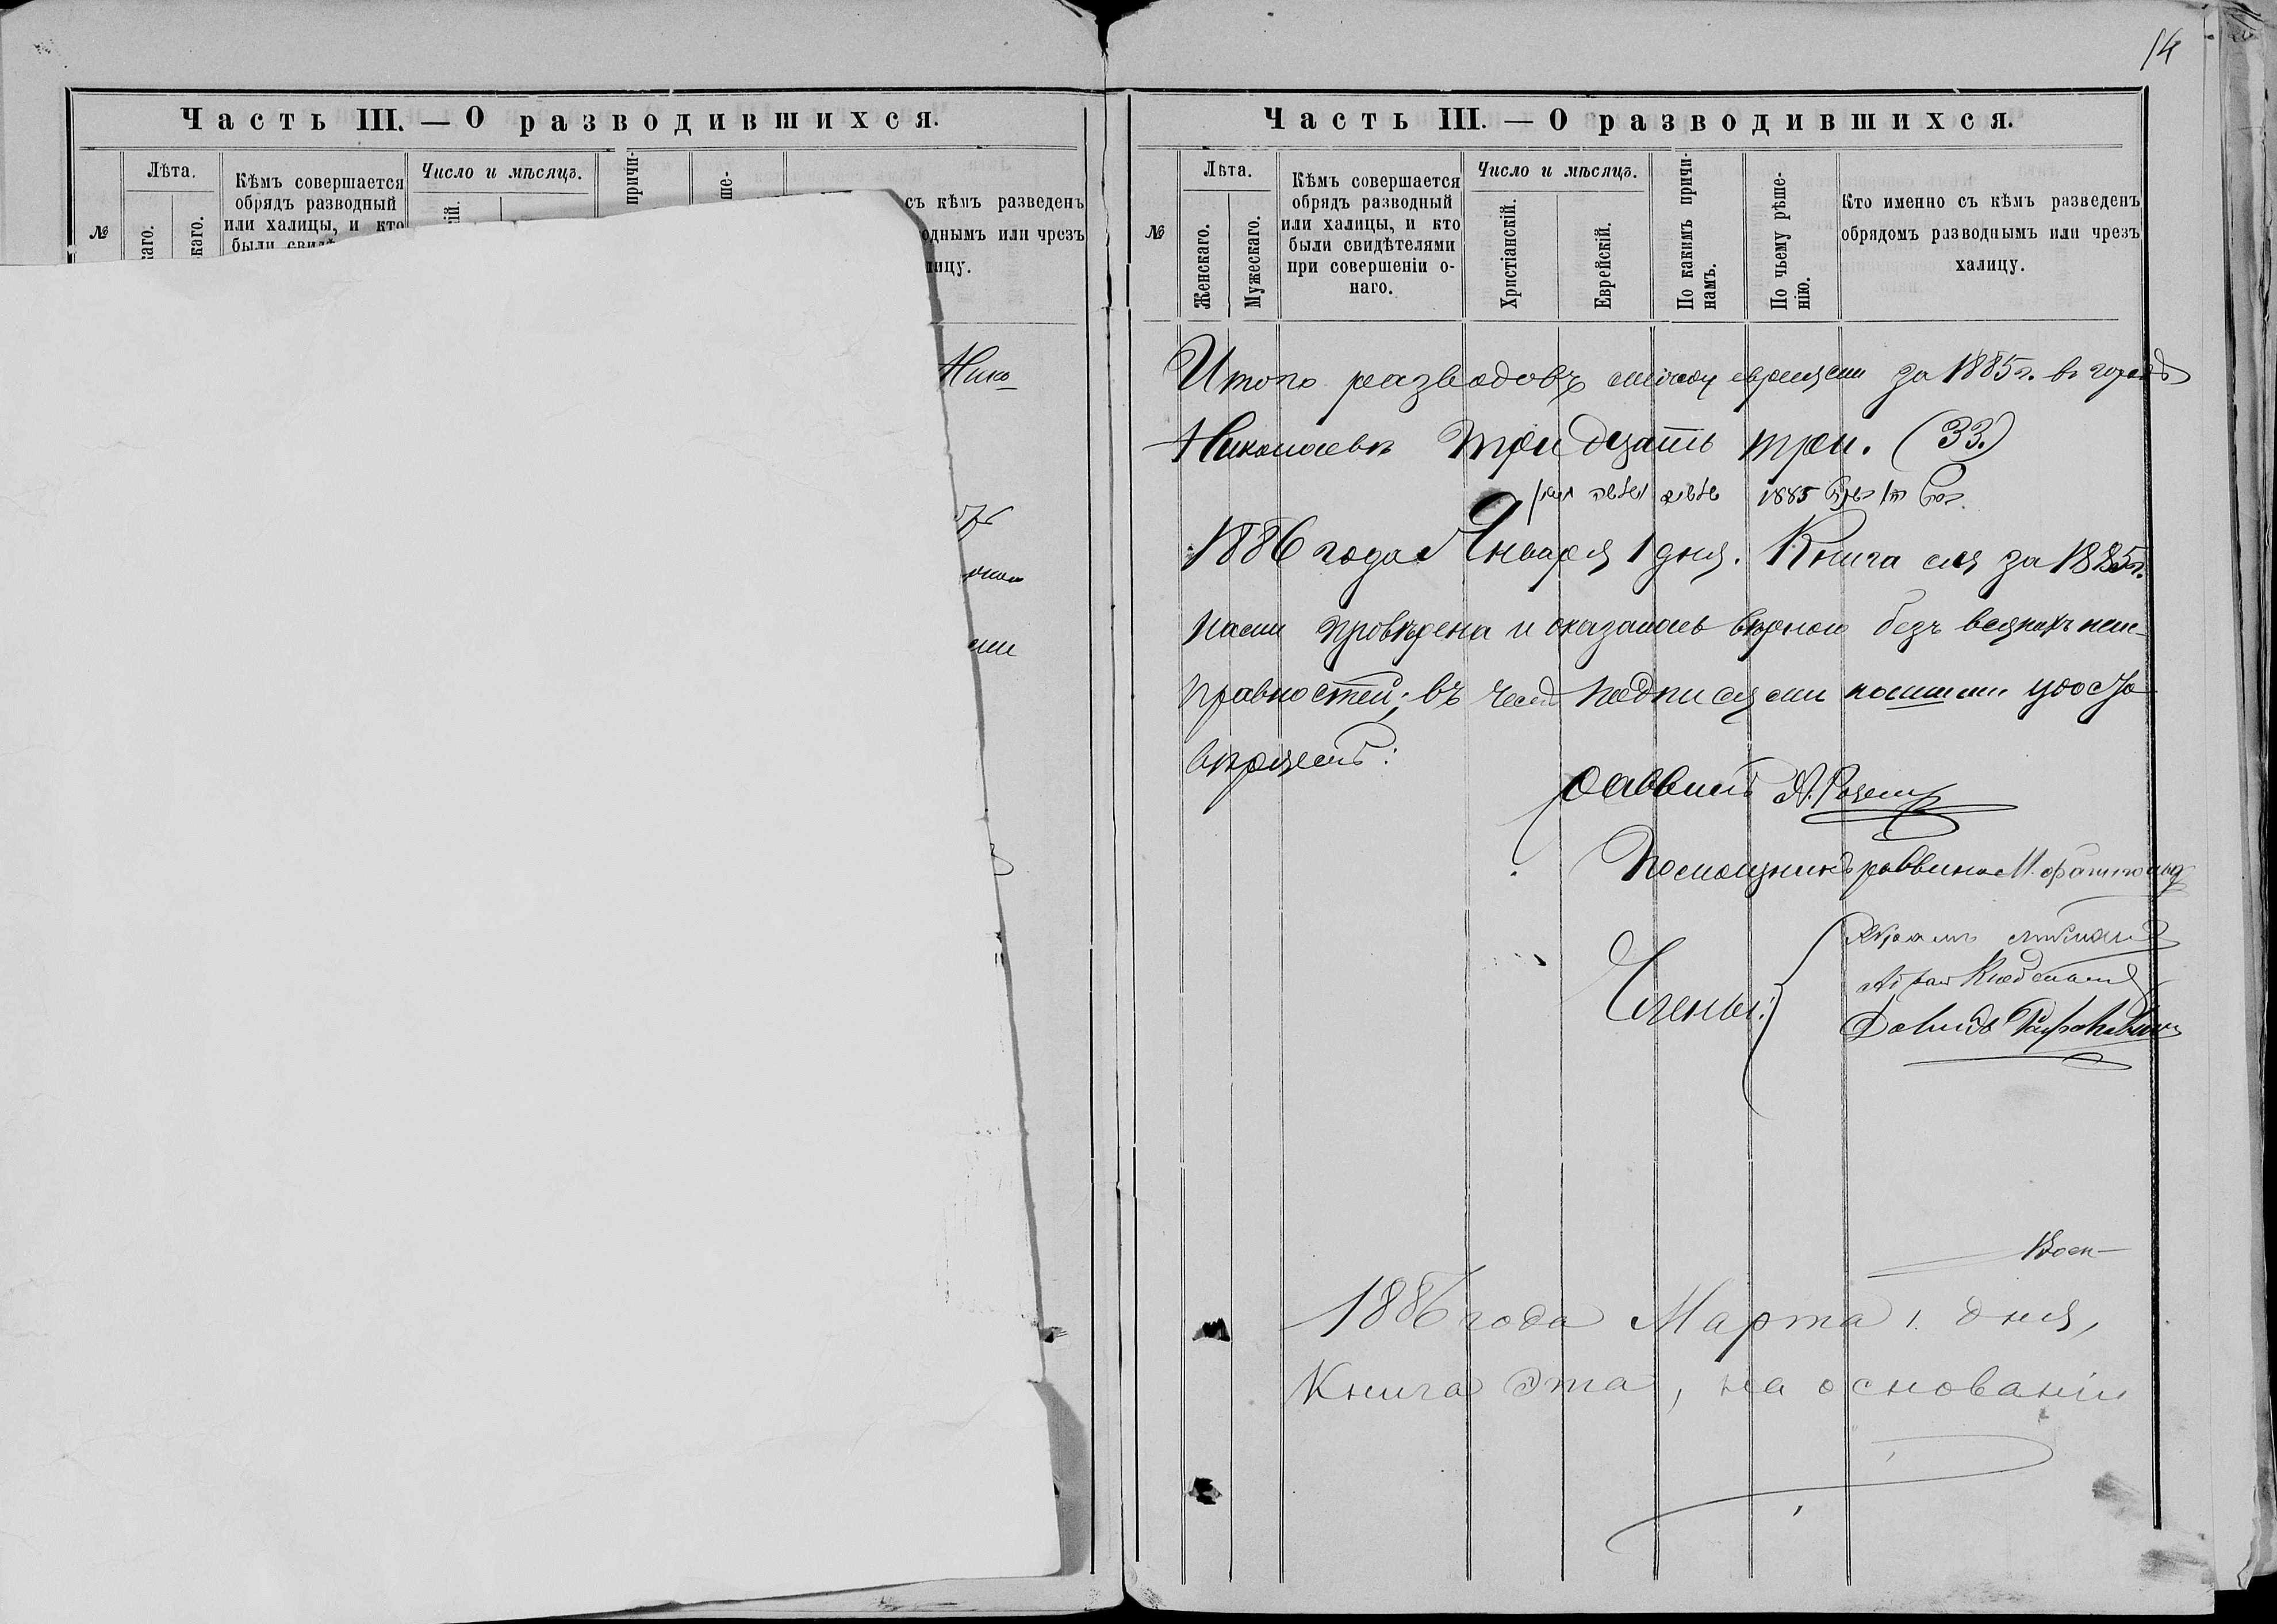 14
Часть III. — О разводившихся.
№
Лѣта.
Кѣмъ совершается
обрядъ разводный
или халицы, и кто
были свидѣ
Число и мѣсяцъ.
причи-
ше-
съ кѣмъ разведенъ
однымъ или чрезъ
лицу.
Нико
Часть III. — О разводившихся.
№
Лѣта.
Женскаго.
Мужескаго.
Кѣмъ совершается
обрядъ разводный
или халицы, и кто
были свидѣтелями
при совершеніи о-
наго.
Число и мѣсяцъ.
Христіанскій.
Еврейскій.
По какимъ причи-
намъ.
По чьему рѣше-
нію.
Кто именно съ кѣмъ разведенъ
обрядомъ разводнымъ или чрезъ
халицу.
Итого разводовъ между евреями за 1885 г. въ городѣ
Николаевѣ тридцать три. (33.)
1885
1886 года Января 1 дня. Книга сія за 1885 г.
нами провѣрена и оказалась вѣрною безъ всякихъ неис-
правностей; въ чемъ подписями нашими удосто
вѣряемъ:
Раввинъ
Помощникъ раввина М.
Члены:
Давидъ
Воен-
1886 года Марта 1 дня,
Книга эта, на основаніи